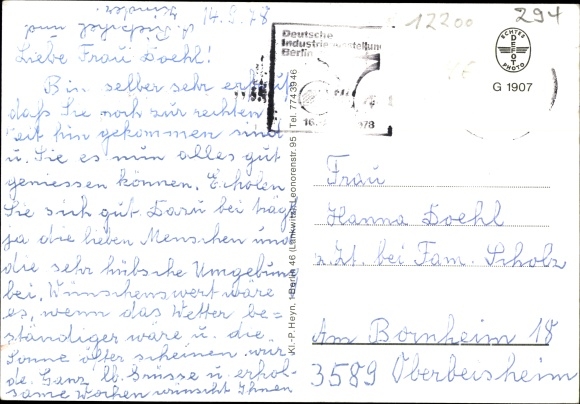 14.8.78
Liebe Frau Doehl!
Bin selber sehr erfreut
daß Sie noch zur rechten
Zeit hin gekommen sind
u. Sie es nun alles gut
geniessen können. Erholen
Sie sich gut. Dazu bei trägt
ja die lieben Menschen und
die sehr hübsche Umgebung
bei. Wünschenswert wäre
es, wenn das Wetter be=
ständiger wäre u. die
Sonne öfter scheinen wür
de. Ganz lb. Grüsse u. erhol-
same Wochen wünscht Ihnen
Kinder
Kl.-P. Heyn, 1 Berlin 46 (Lankwitz) Leonorenstr. 95, Tel. 774 39 46
Deutsche
Industrieausstellung
Berlin
16.
1978
12200
294
ECHTES
DEFOT
PHOTO
G 1907
Frau
Hanna Doehl
z.Zt. bei Fam. Scholz
Am Bornheim 18
3589 Oberbeisheim